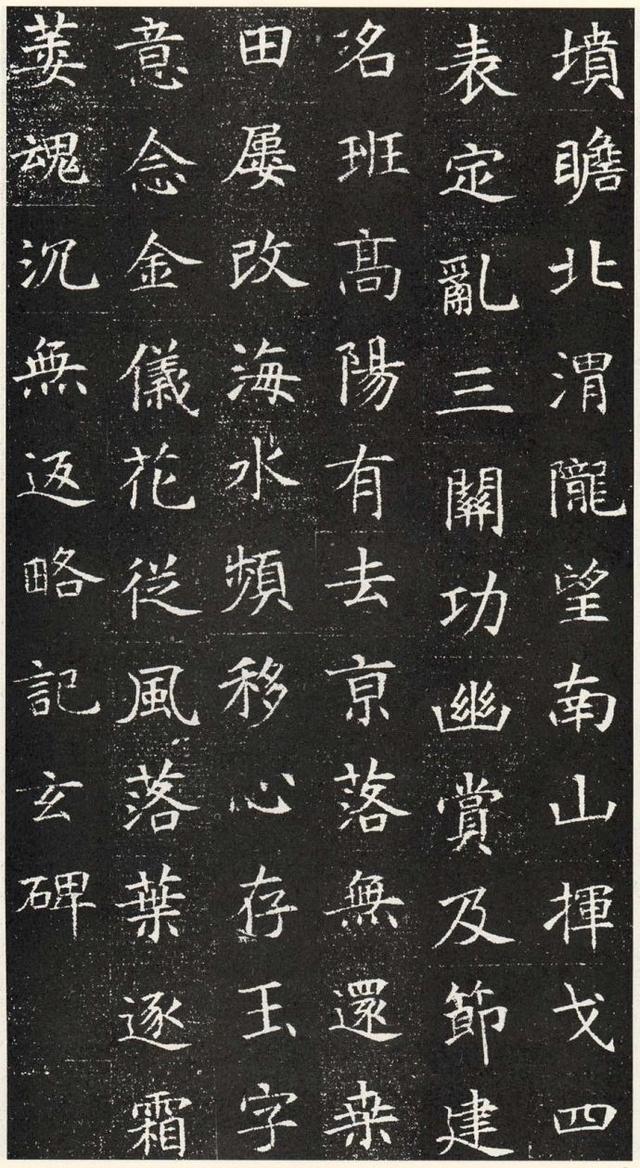 墳瞻北渭隴望南山揮戈四
表定亂三關功幽賞及節建
洺班髙陽有去京落無還桒
田屢改海水頻移心存玉字
意念金儀花從風落葉逐霜
萎魂沉無返略記玄碑